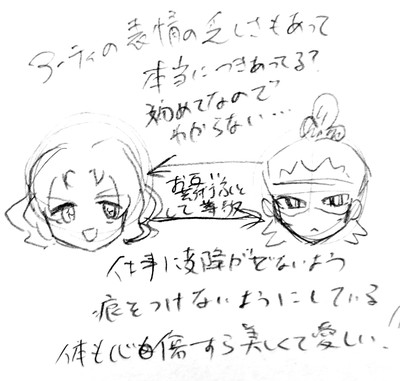 アーティの表情の乏しさもあって
本当につきあってる?
初めてなので
わからない…
お互い
して尊敬
仕事に支障がでないよう
痕をつけないようにしている
体も心も傷すら美しくて愛しい